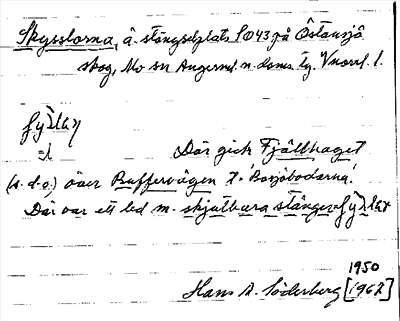 Skysslorna, å. stängselplats SO43 på Östansjö
skog, Mo sn Ångerml. n. doms. tg. Vnorrl. l.
Där gick Fjällhaget
(s. d. o.) över Buffervägen t. Borjöbodarna.
Där var ett led m. skjutbara stänger
1950
Hans A. Söderberg [1962]